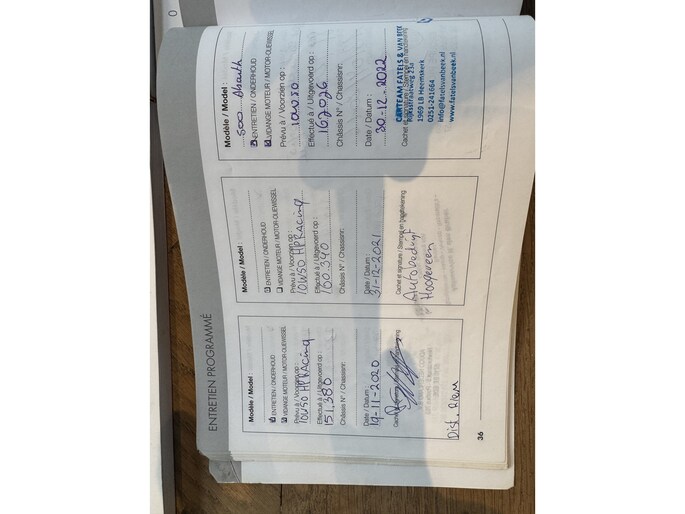 ENTRETIEN PROGRAMMÉ
Modèle / Model :
ENTRETIEN / ONDERHOUD
VIDANGE MOTEUR / MOTOR-OLIEWISSEL
Prévu à / Voorzien op :
10W50 HPRacing
Effectué à / Uitgevoerd op :
151.380
Châssis N° / Chassisnr:
Date / Datum :
19-11-2020
Dist. Riem
36
Modèle / Model
ENTRETIEN / ONDERHOUD
VIDANGE MOTEUR / MOTOR-OLIEWISSEL
Prévu à / Voorzien op :
10W50 HPRacing
Effectué à / Uitgevoerd op :
160.340
Châssis N° / Chassisnr:
Date / Datum :
31-12-2021
Cachet et signature / Stempel en handtekening
Autobedrijf
Hoogeveen
Modèle / Model :
500 Abarth
ENTRETIEN / ONDERHOUD
VIDANGE MOTEUR / MOTOR-OLIEWISSEL
Prévu à / Voorzien op :
10W50
Effectué à / Uitgevoerd op :
167026
Châssis N° / Chassisnr:
Date / Datum :
30-12-2022
Cachet et signature / Stempel en handtekening
CARTEAM FATELS & VAN BEEK
Rijksstraatweg 23a
1969 LB Heemskerk
0251-241664
info@fatelsvanbeek.nl
www.fatelsvanbeek.nl